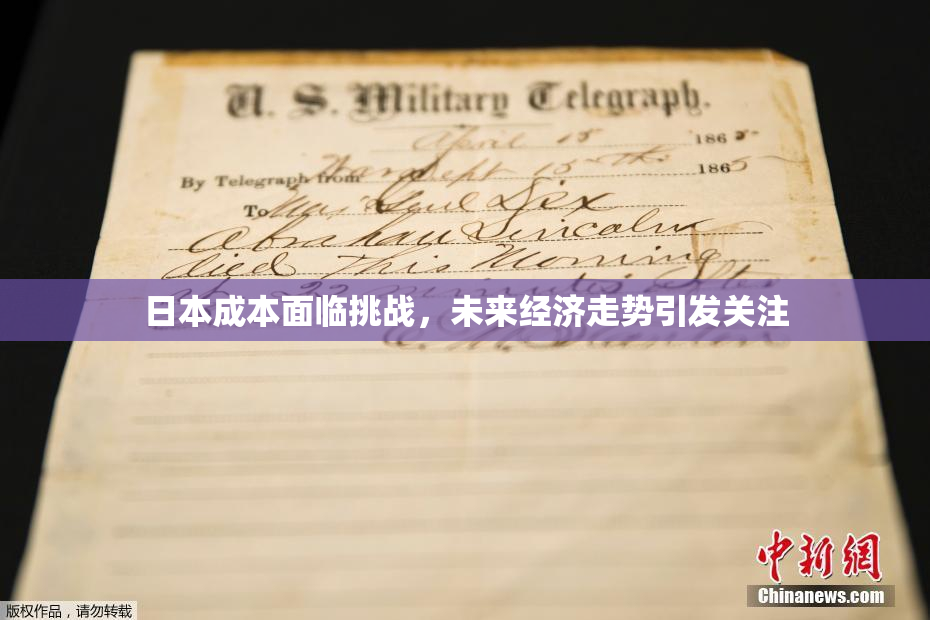 U. S. Military Telegraph.
April 15 1865
By Telegraph from War Dept 15th 1865
To Maj Genl Dix
Abraham Lincoln
died This Morning
at 22 minutes after
日本成本面临挑战，未来经济走势引发关注
E. M. Stanton
中新網
Chinanews.com
版权作品，请勿转载